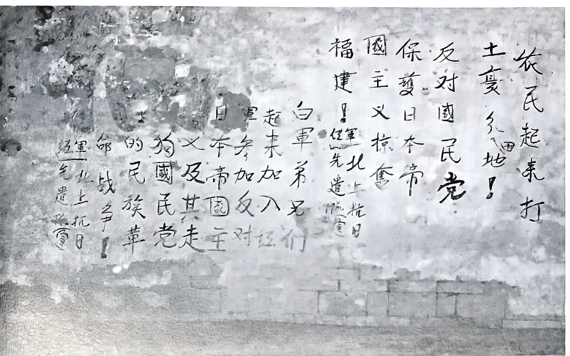 农民起来打
土豪分田地！
反对國民党
保護日本帝
國主义掠奪
福建！
红軍北上抗日
先遣隊宣
白軍弟兄们
起来加入红
軍参加反对
日本帝國主
义及其走
狗國民党
的民族革
命战争！
红軍北上抗日
先遣隊宣